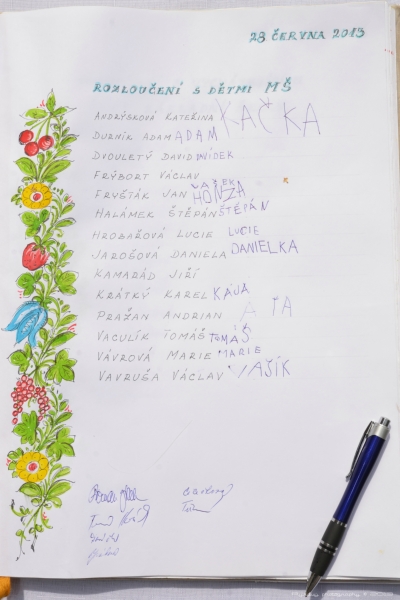 28 ČERVNA 2013
ROZLOUČENÍ S DĚTMI MŠ
ANDRÝSKOVÁ KATEŘINA KAČKA
DURNÍK ADAM ADAM
DVOULETÝ DAVID
FRÝBORT VÁCLAV
FRYŠTÁK JAN HONZA
HALÁMEK ŠTĚPÁN ŠTĚPÁN
HROBAŘOVÁ LUCIE LUCIE
JAROŠOVÁ DANIELA DANIELKA
KAMARÁD JIŘÍ
KRÁTKÝ KAREL KÁJA
PRAŽAN ANDRIAN
VACULÍK TOMÁŠ TOMÁŠ
VÁVROVÁ MARIE MARIE
VAVRUŠA VÁCLAV VAŠÍK